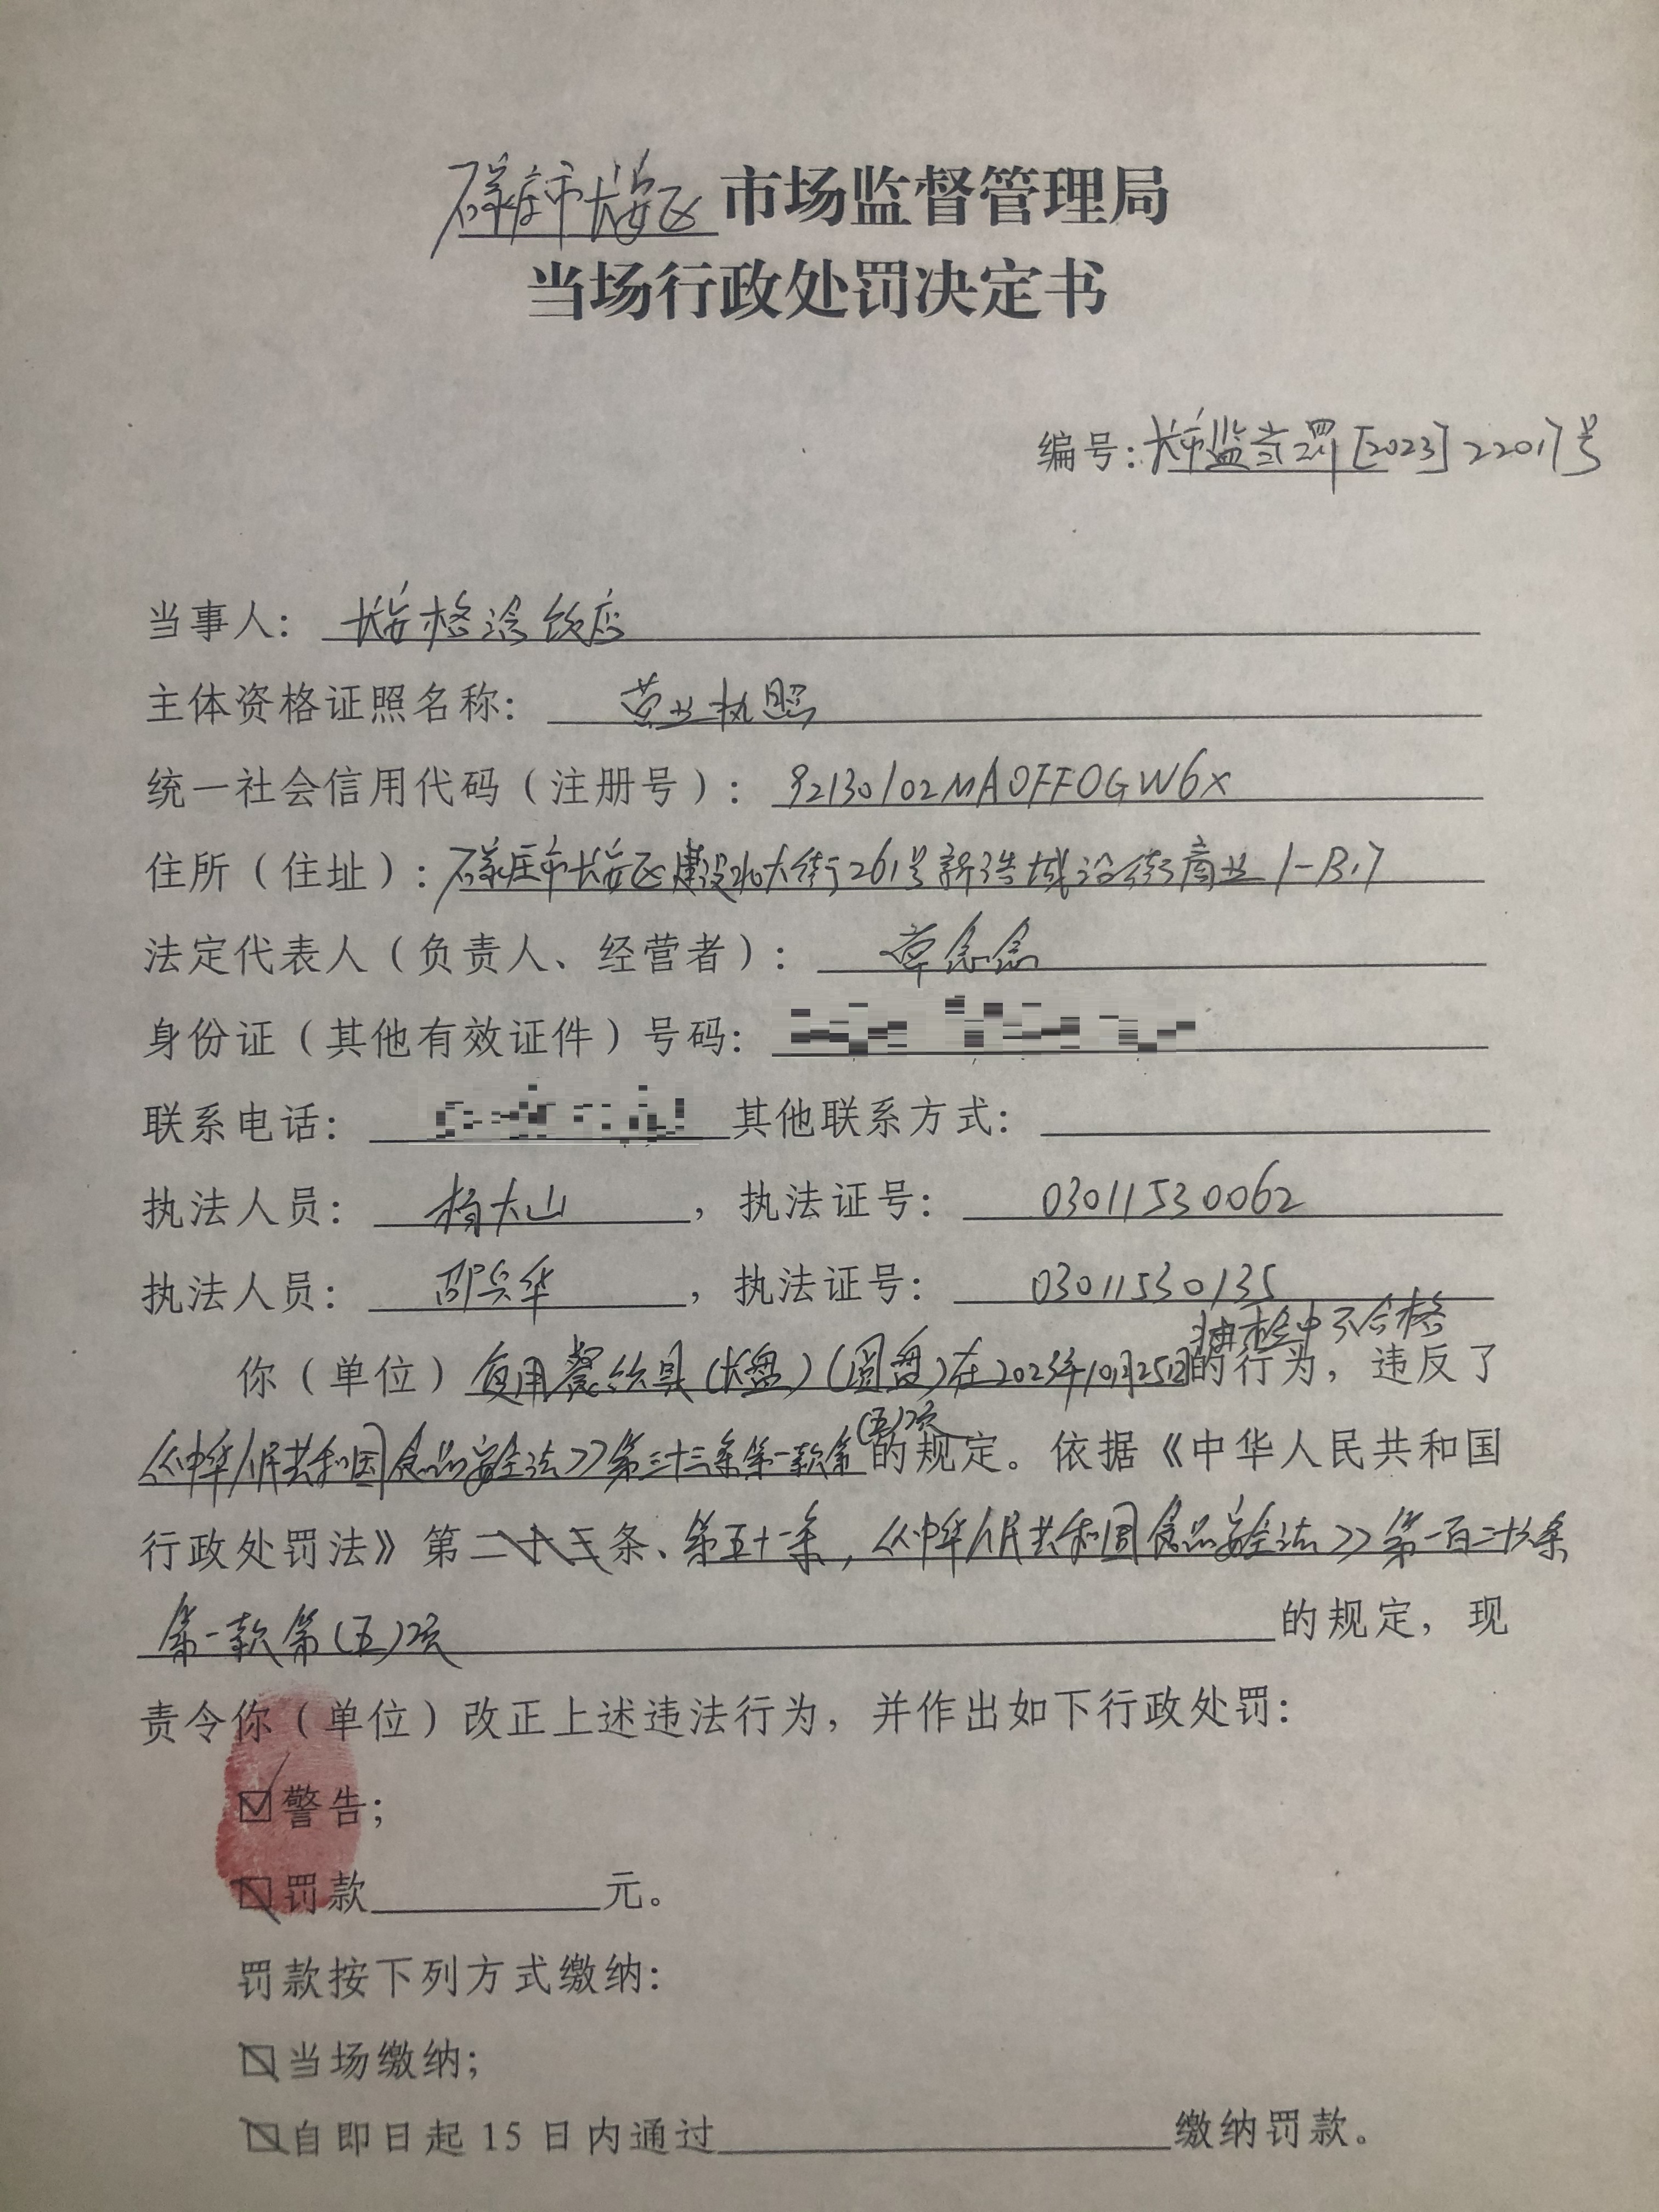 石家庄市长安区市场监督管理局
当场行政处罚决定书
编号:长市监当罚[2023]22017号
当事人: 长安格涂饭店
主体资格证照名称: 营业执照
统一社会信用代码(注册号): 92130102MA0FF0GW6X
住所(住址):石家庄市长安区建设北大街261号新浩城沿街商业1-B17
法定代表人(负责人、经营者): 章念念
身份证(其他有效证件)号码:
联系电话: 其他联系方式:
执法人员: 杨大山,执法证号: 03011530062
执法人员: 邵兵华,执法证号: 03011530135
抽检中不合格
你(单位)复用餐饮具(大盘)(圆盘)在2023年10月25日的行为,违反了
《中华人民共和国食品安全法》第三十三条第一款第(五)项的规定。依据《中华人民共和国
行政处罚法》第二十三条、第五十一条,《中华人民共和国食品安全法》第一百二十六条
第一款第(五)项的规定,现
责令你(单位)改正上述违法行为,并作出如下行政处罚:
☑警告;
罚款 元。
罚款按下列方式缴纳:
当场缴纳;
自即日起15日内通过 缴纳罚款。